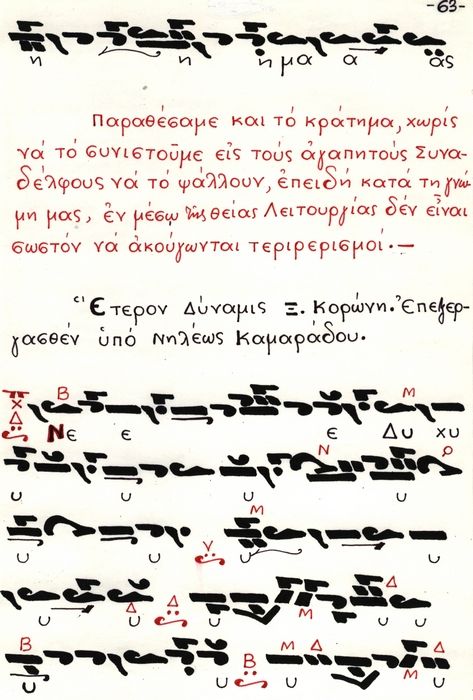 -63-
η η η μα α ας
Παραθέσαμε και τό κράτημα, χωρίς
νά τό συνιστοῦμε εἰς τούς ἀγαπητούς Συνα-
δέλφους νά τό ψάλλουν, ἐπειδή κατά τη γνώ-
μη μας, ἐν μέσῳ τῆς θείας Λειτουργίας δέν εἶναι
σωστόν νά ἀκούγωνται τεριρερισμοί.—
Ἕτερον Δύναμις Ξ. Κορώνη. Ἐπεξερ-
γασθέν ὑπό Νηλέως Καμαράδου.
Β Μ
Νε ε ε Δυ χυ
Ν
υ υ υ υ
Μ
υ υ υ υ υ
Δ
υ υ Δ Δ υ υ Μ υ
Β Μ Δ Δ
υ υ Β υ υ Μ